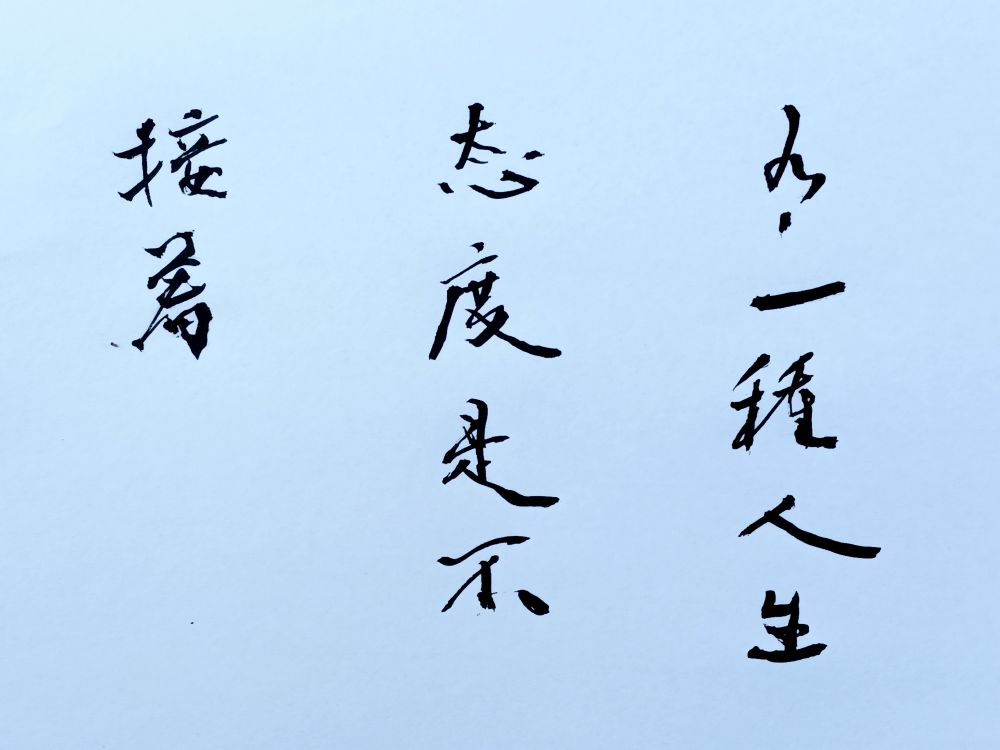 一種人生
态度是不
接着